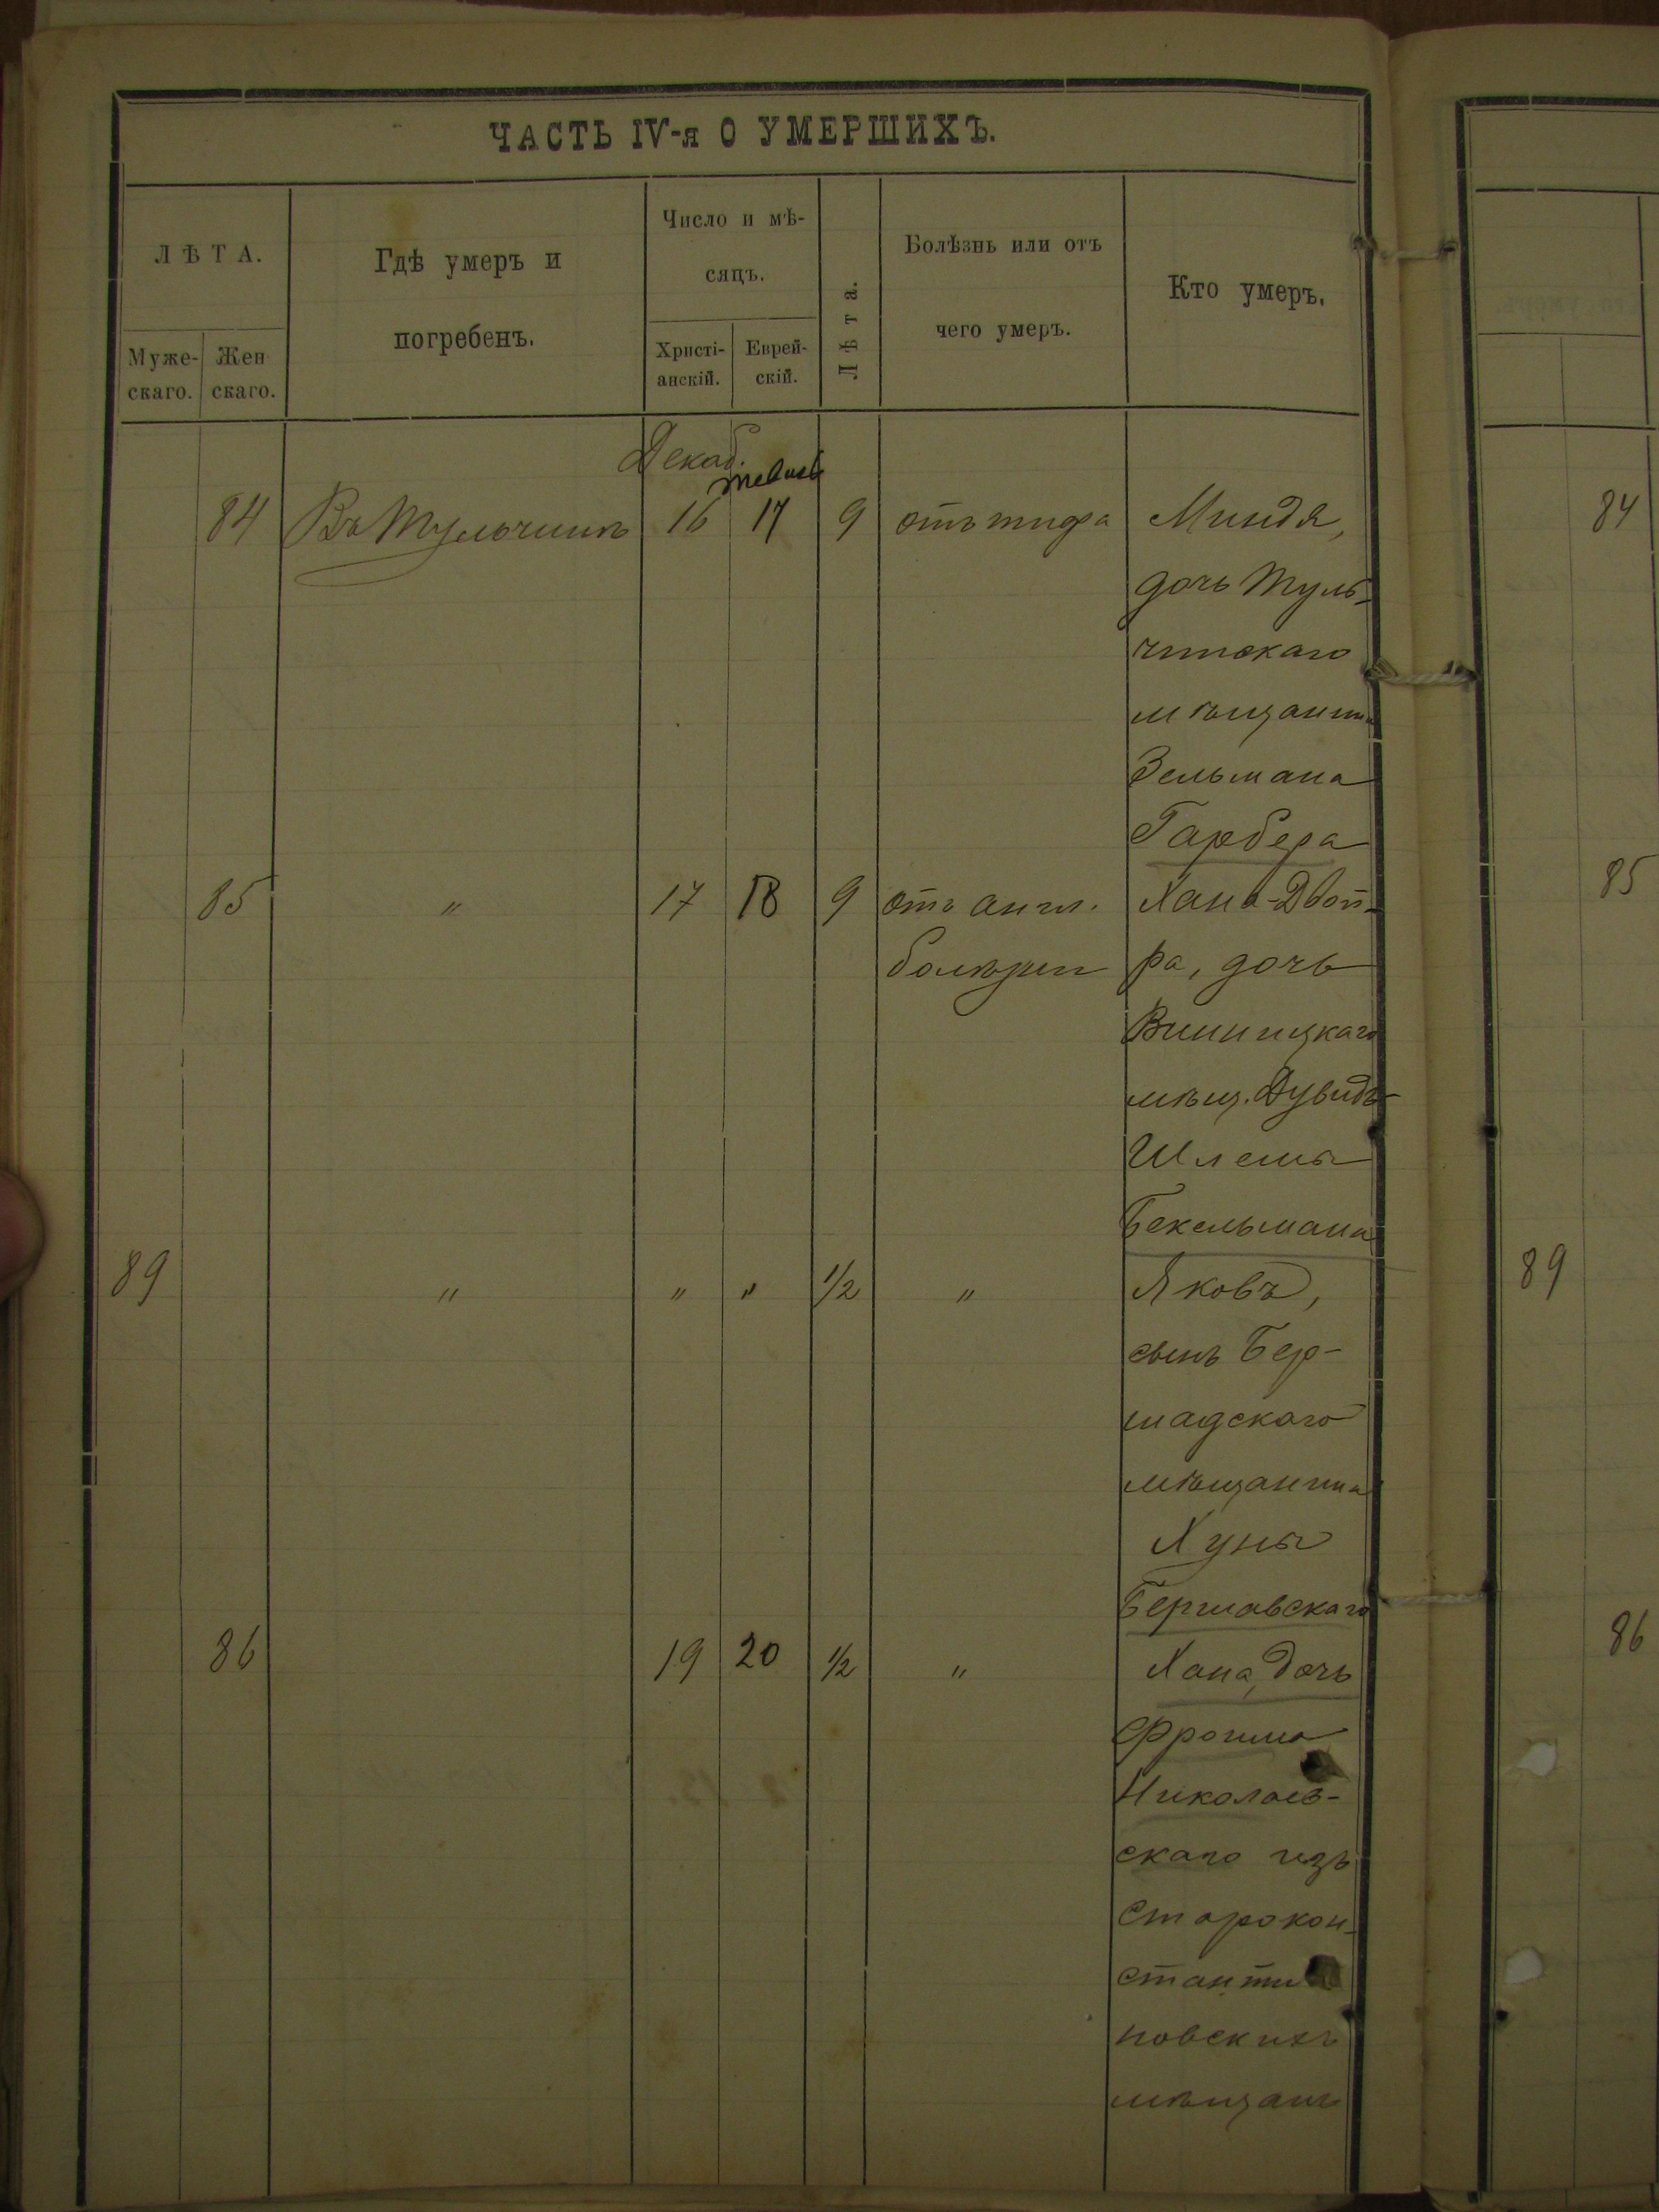 ЧАСТЬ IV-я О УМЕРШИХЪ.
ЛѢТА.
Муже-
скаго.
Жен
скаго.
Гдѣ умеръ и
погребенъ.
Число и мѣ-
сяцъ.
Христі-
анскій.
Еврей-
скій.
Лѣта.
Болѣзнь или отъ
чего умеръ.
Кто умеръ.
Декаб.
84 Въ Тульчинѣ 16 17 9 отъ тифа Миндя,
дочь Туль-
чинскаго
мѣщанина
Зельмана
Гарбера
85 " 17 18 9 отъ англ. Хана-Двой-
болѣзни ра, дочь
Винницкаго
мѣщ. Дувидъ
Шлемы
Бекельмана
89 " " " 1/2 " Яковъ,
сынъ Бер-
шадскаго
мѣщанина
Хуны
Бершавскаго
86 19 20 1/2 " Хана, дочь
Фроима
Николаев-
скаго изъ
Старокон-
стантин
новскихъ
мѣщанъ
84
85
89
86